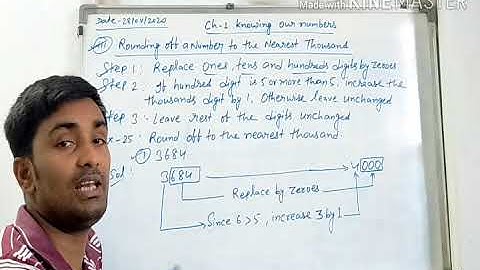 Made with KINEMASTER
Date-28/04/2020
Ch-1 Knowing our numbers
III Rounding off a Number to the Nearest Thousand
Step 1: Replace Ones, tens and hundreds digits by zeroes
Step 2: If hundred digit is 5 or more than 5, increase the
thousands digit by 1. Otherwise leave unchanged
Step 3: Leave rest of the digits unchanged
Ex-25: Round off to the nearest thousand.
① 3684
Sol: 3684 4000
Replace by zeroes
Since 6>5, increase 3 by 1